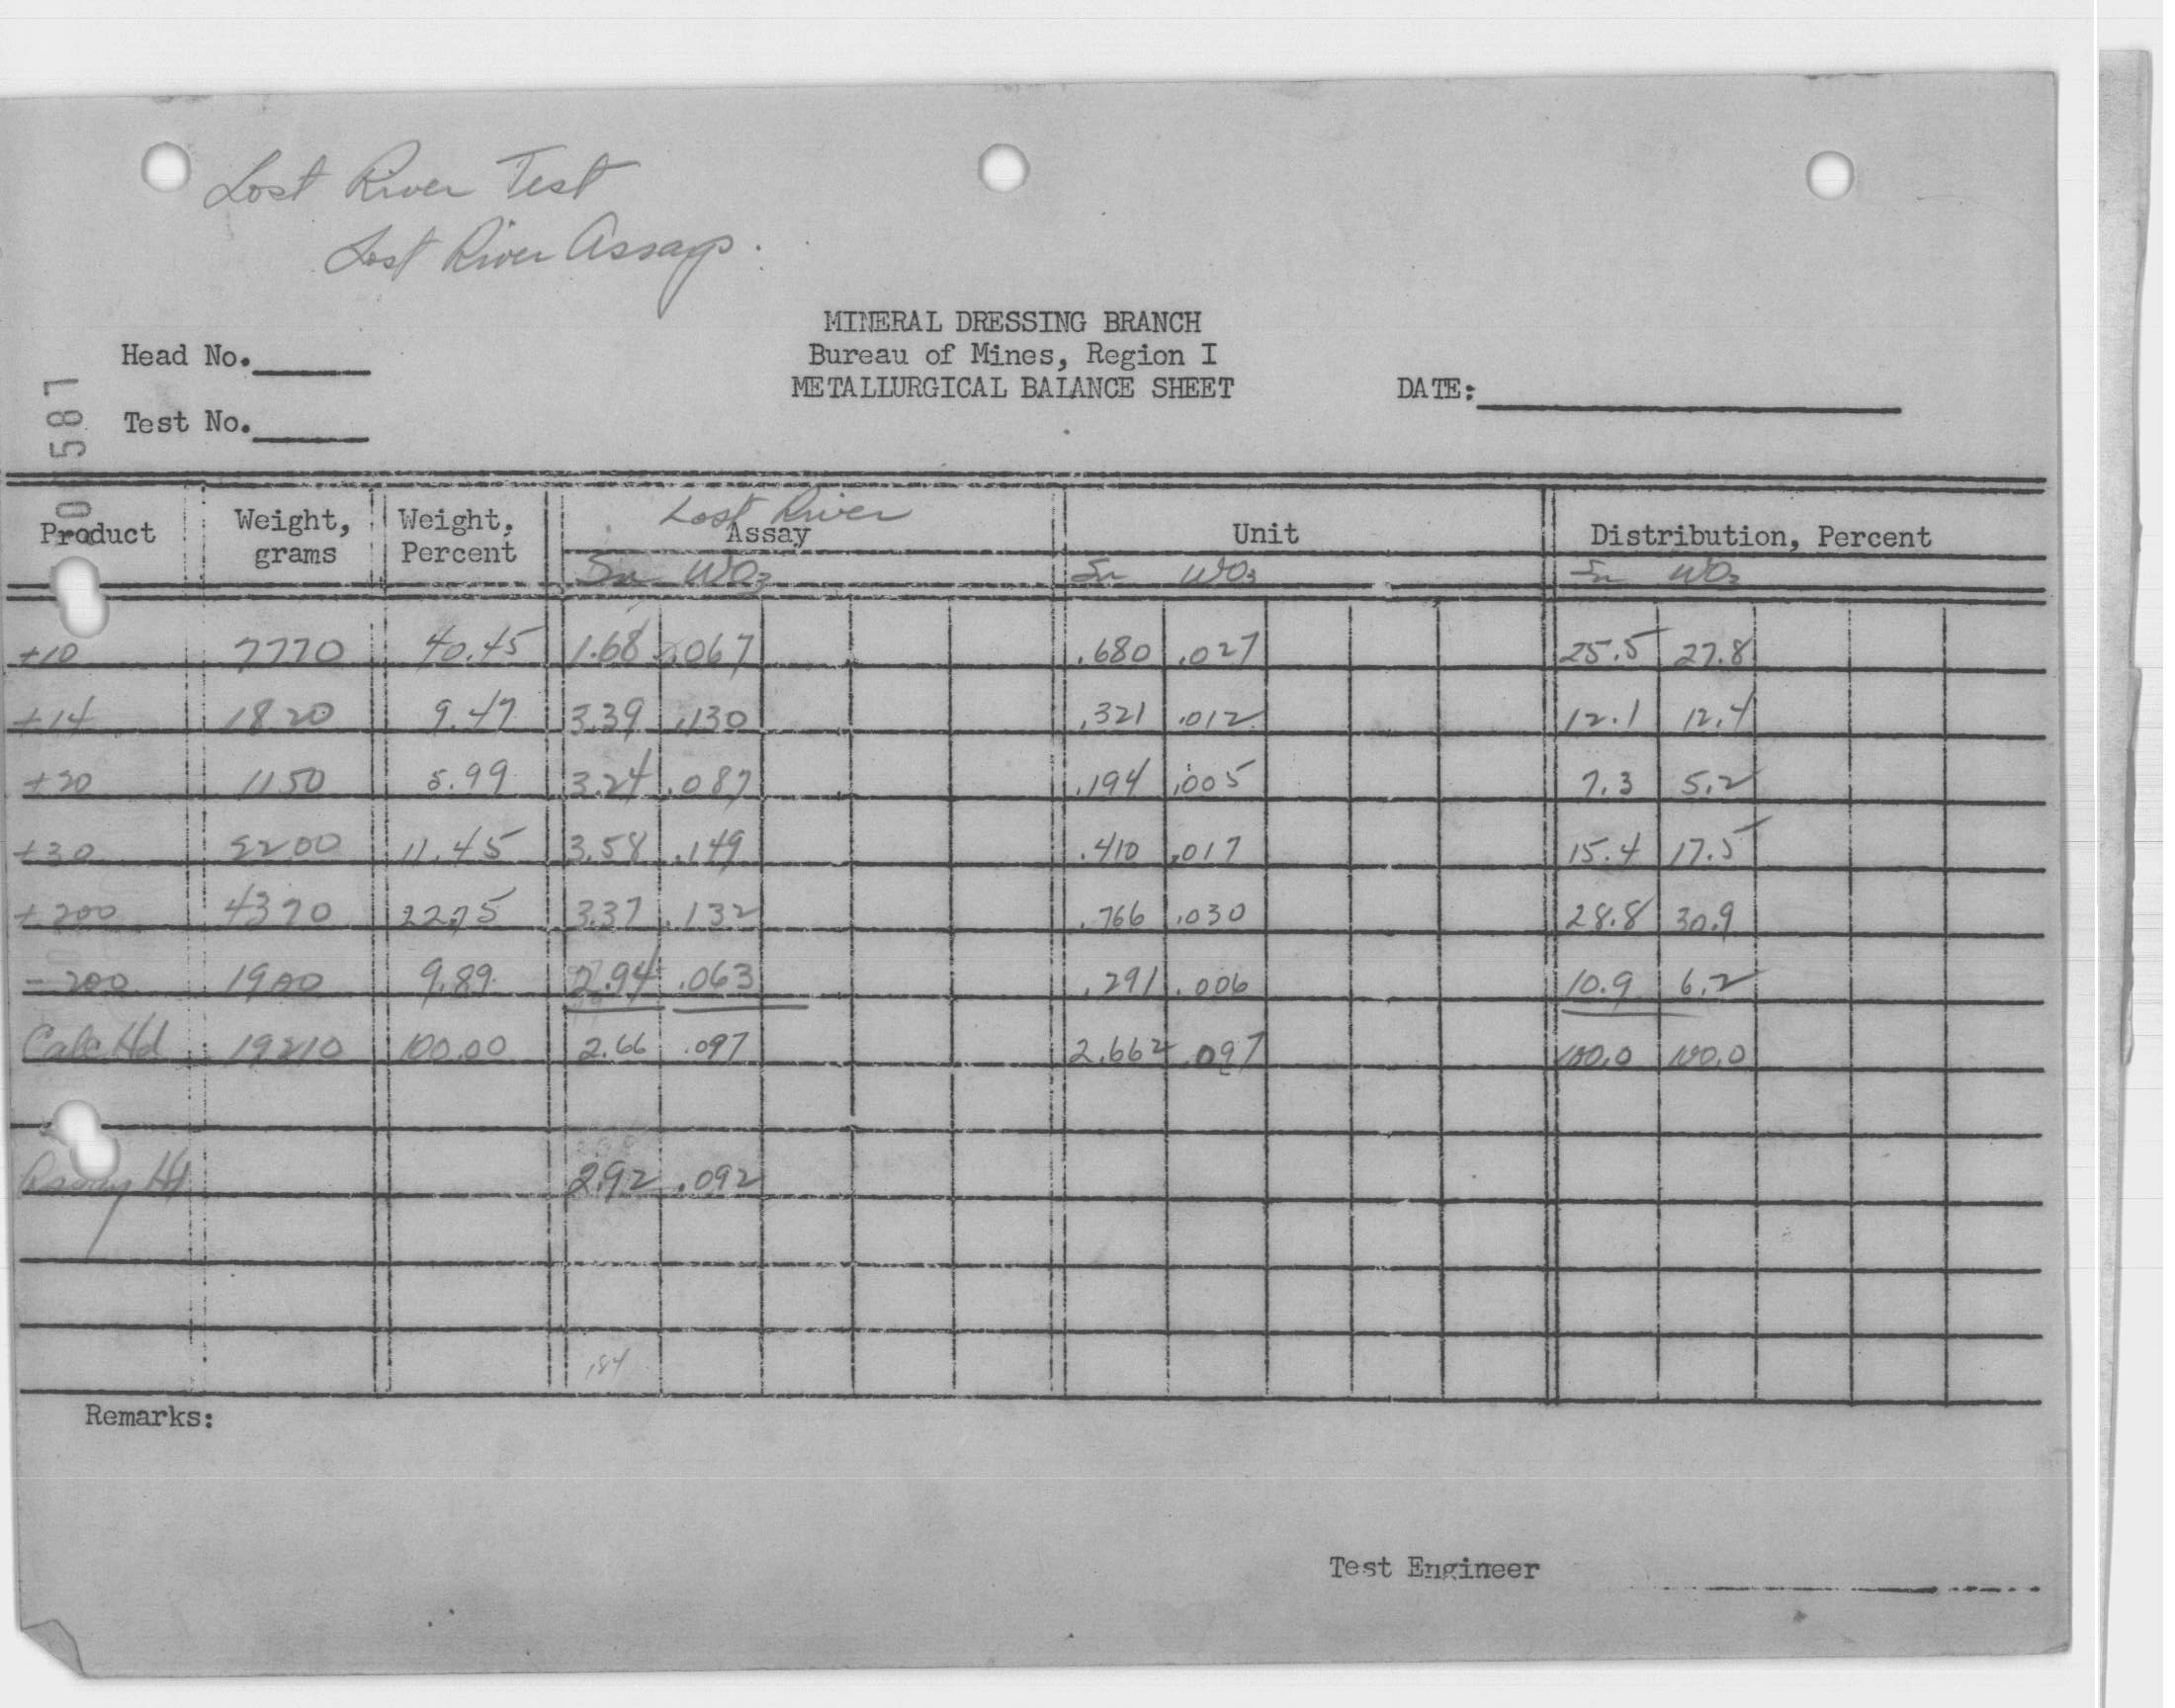 Lost River Test
Lost River Assays.
MINERAL DRESSING BRANCH
Head No. Bureau of Mines, Region I
METALLURGICAL BALANCE SHEET DATE:
Test No.
0 581
Lost River
Product Weight, grams Weight, Percent Assay Unit Distribution, Percent
Sn WO3 Sn WO3 Sn WO3
+10 7770 40.45 1.68 .067 .680 .027 25.5 27.8
+14 1820 9.47 3.39 .130 .321 .012 12.1 12.4
+20 1150 5.99 3.24 .087 .194 .005 7.3 5.2
+30 2200 11.45 3.58 .149 .410 .017 15.4 17.5
+200 4370 22.75 3.37 .132 .766 .030 28.8 30.9
-200 1900 9.89 2.94 .063 .291 .006 10.9 6.2
Calc Hd 19210 100.00 2.66 .097 2.662 .097 100.0 100.0
Assay Hd 2.92 .092
.184
Remarks:
Test Engineer